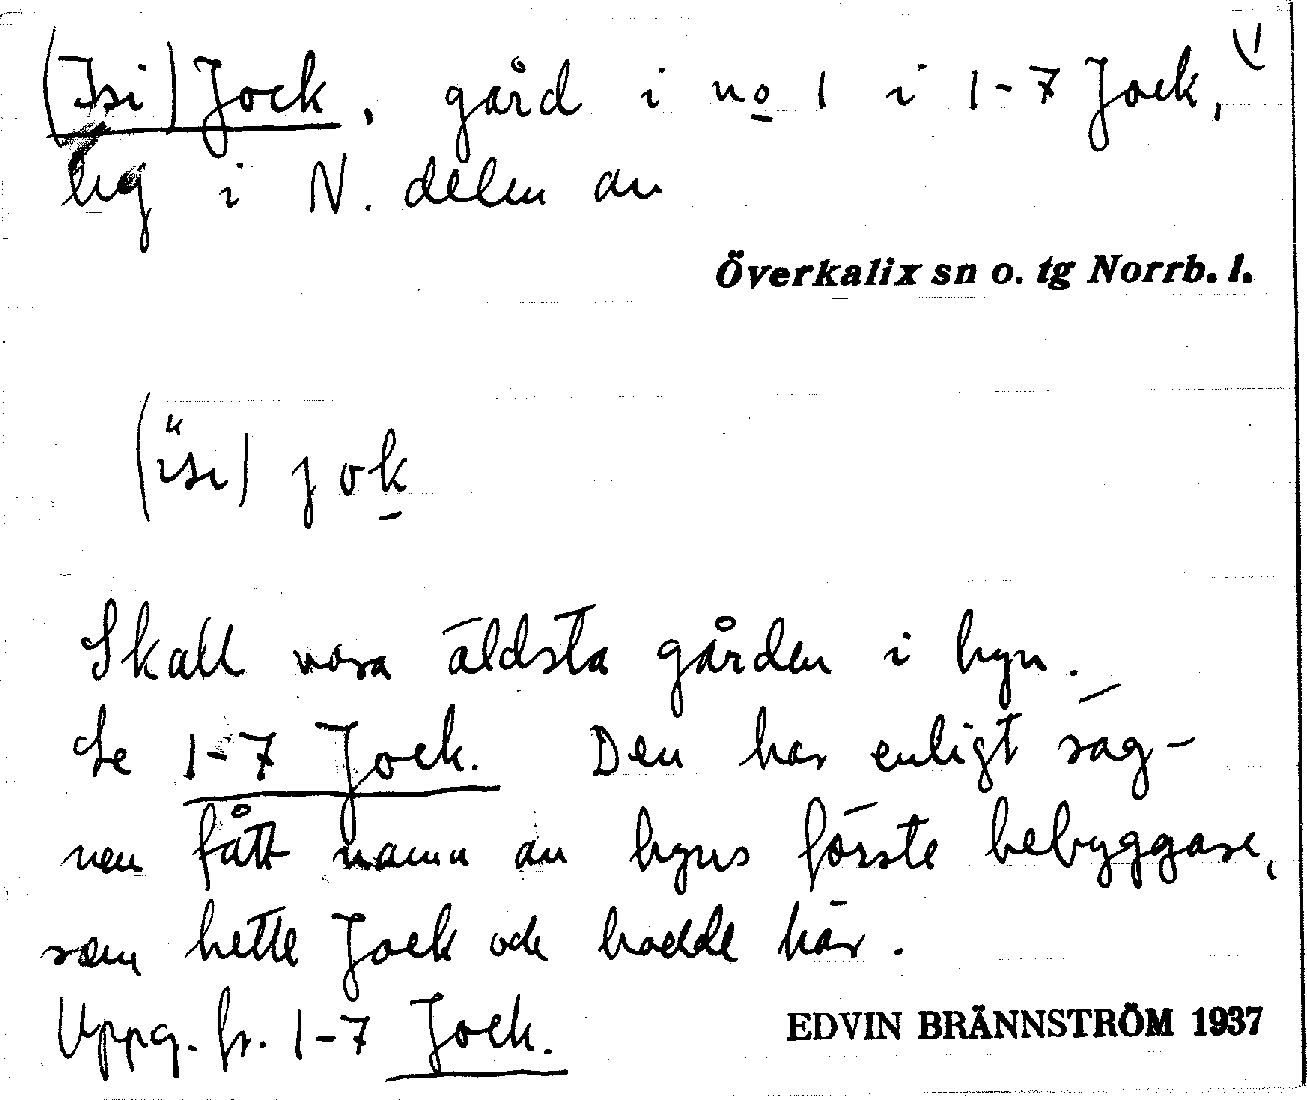 (Isi) Jock, gård i no 1 i 1-7 Jock,
beg i N. delen av
Överkalix sn o. tg Norrb. l.
(isi) jok
Skall vara äldsta gården i byn.
Se 1-7 Jock. Den har enligt säg-
nen fått namn av byns förste bebyggare,
som hette Jock och bodde här.
Uppg. fr. 1-7 Jock.
EDVIN BRÄNNSTRÖM 1937